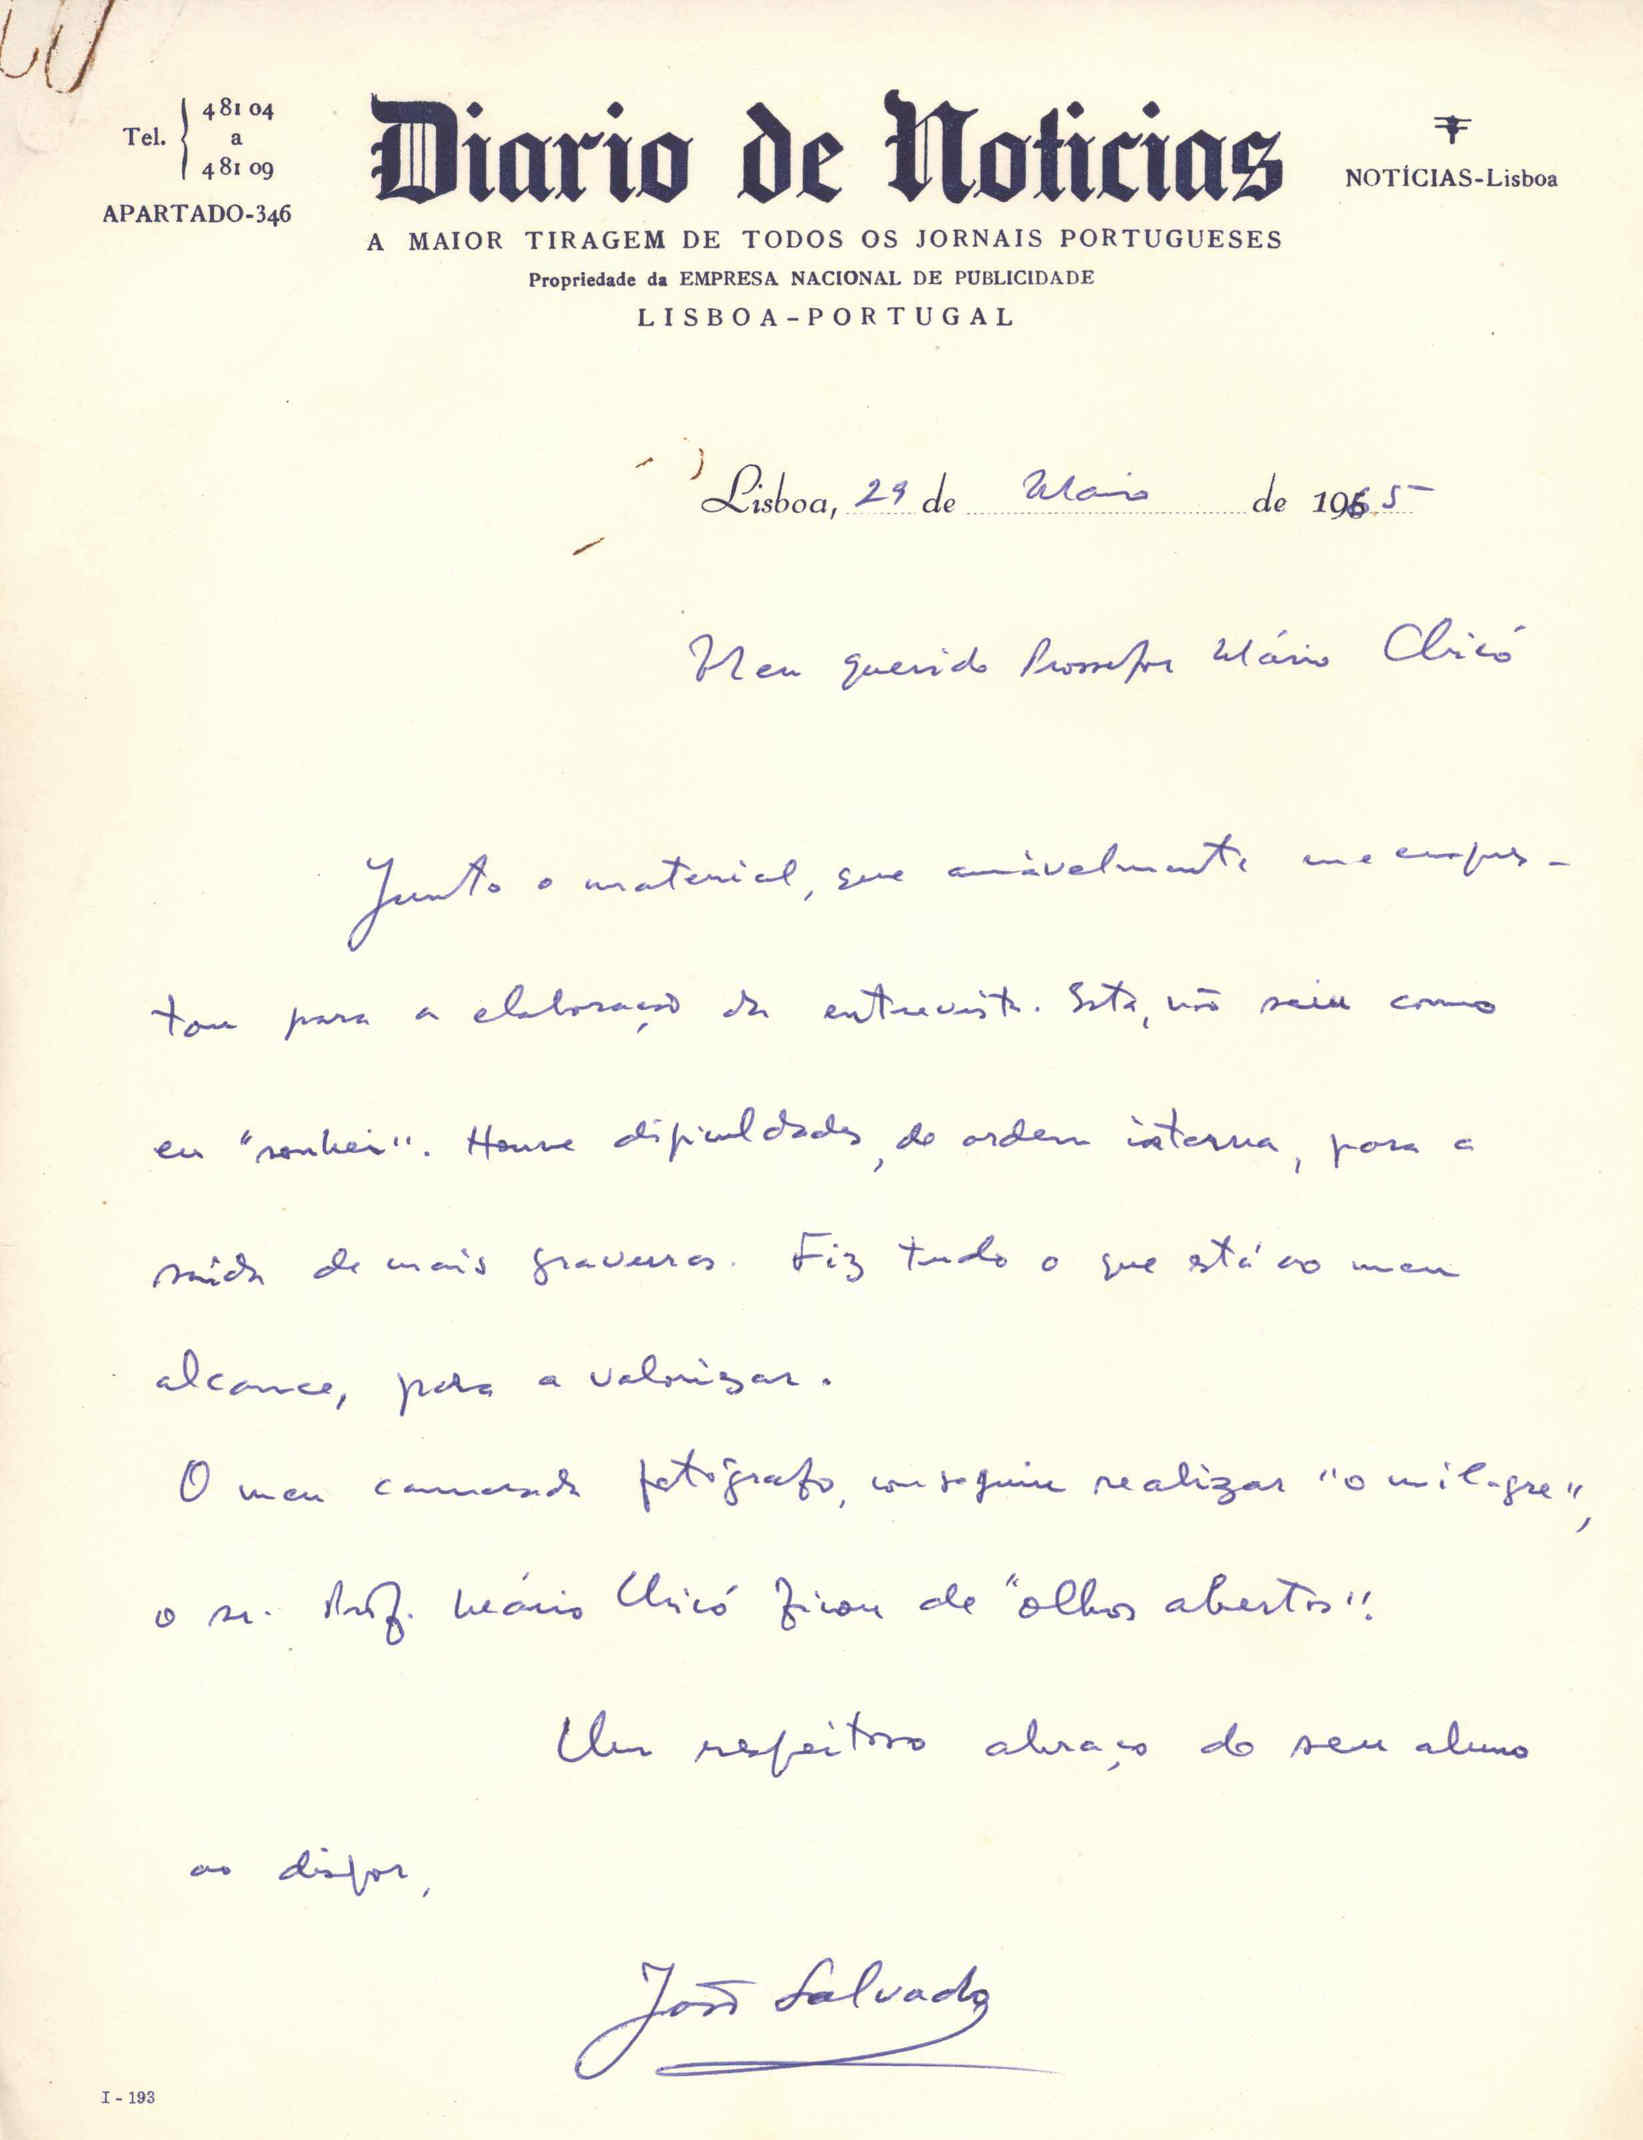 Tel. 481 04 a 481 09
APARTADO-346
Diario de Noticias
NOTÍCIAS-Lisboa
A MAIOR TIRAGEM DE TODOS OS JORNAIS PORTUGUESES
Propriedade da EMPRESA NACIONAL DE PUBLICIDADE
LISBOA-PORTUGAL
Lisboa, 29 de Maio de 1965
Meu querido Prossefor Mário Chicó
Junto o material, que amàvelmente me empres-
tou para a elaboração da entrevista. Esta, não saiu como
eu "sonhei". Houve dificuldades, de ordem interna, para a
saída de mais gravuras. Fiz tudo o que está ao meu
alcance, para a valorizar.
O meu camarada fotógrafo, conseguiu realizar "o milagre",
o sr. Prof. Mário Chicó ficou de "olhos abertos".
Um respeitoso abraço do seu aluno
ao dispor,
João Salvado
I - 193